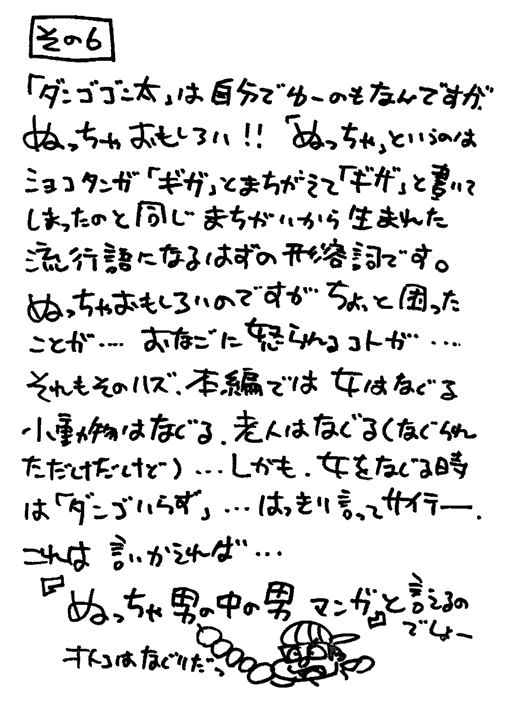 その6
「ダンゴゴン太」は自分でゆーのもなんですが、
ぬっちゃおもしろい!!「ぬっちゃ」というのは
ショコタンが「ギガ」とまちがえて「ギザ」と書いて
しまったのと同じまちがいから生まれた
流行語になるはずの形容詞です。
ぬっちゃおもしろいのですがちょっと困った
ことが‥‥おなごに怒られるコトが‥‥
それもそのハズ、本編では女はなぐる
小動物はなぐる、老人はなぐる(なぐられ
ただけだけど)…しかも、女をなぐる時
は「ダンゴいらず」…はっきり言ってサイテー、
これは言いかえれば…
ぬっちゃ男の中の男マンガと言えるの
でしょー
オトコはなぐりだっ